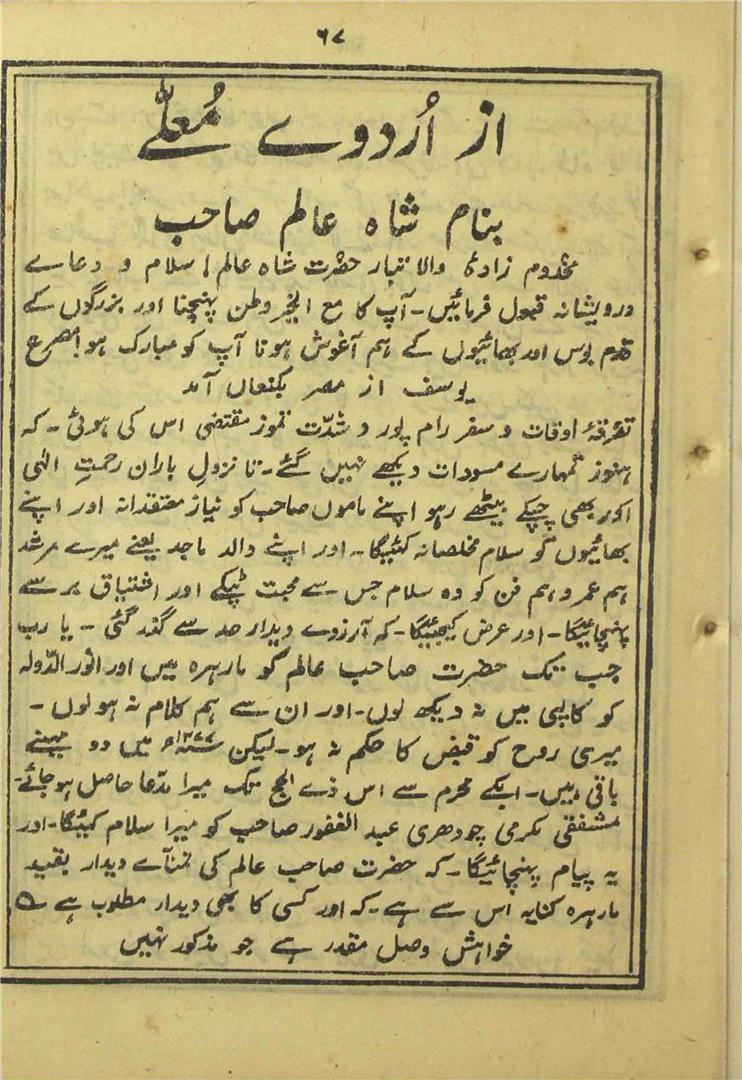 ۶۷
از اُردوے مُعلّے
بنام شاہ عالم صاحب
مخدوم زادۂ والا تبار حضرت شاہ عالم! سلام و دعاے
درویشانہ قبول فرمائیں۔ آپ کا مع الخیر وطن پہنچنا اور بزرگوں کے
قدم بوس اور بھائیوں کے ہم آغوش ہونا آپ کو مبارک ہو! مصرع
یوسف از مصر بکنعاں آمد
تفرقۂ اوقات و سفر رام پور و شدّت تموز مقتضی اس کی ہوئی۔ کہ
ہنوز تمہارے مسودات دیکھے نہیں گئے۔ تا نزولِ باران رحمتِ الٰہی
اور بھی چپکے بیٹھے رہو اپنے ماموں صاحب کو نیاز معتقدانہ اور اپنے
بھائیوں کو سلام مخلصانہ کہئیگا۔ اور اپنے والد ماجد یعنے میرے مرشد
ہم عمر و ہم فن کو وہ سلام جس سے محبت ٹپکے اور اشتیاق برسے
پہنچائیگا۔ اور عرض کیجئیگا۔ کہ آرزوے دیدار حد سے گذر گئی۔ یا رب
جب تک حضرت صاحب عالم کو مارہرہ میں اور انور الدّولہ
کو کالپی میں نہ دیکھ لوں۔ اور ان سے ہم کلام نہ ہو لوں۔
میری روح کو قبض کا حکم نہ ہو۔ لیکن ۱۲۷۷ھ میں دو مہینے
باقی ہیں۔ ابکے محرم سے اس ذے الحج تک میرا مدّعا حاصل ہو جائے۔
مشفقی مکرمی چودھری عبد الغفور صاحب کو میرا سلام کہئیگا۔ اور
یہ پیام پہنچائیگا۔ کہ حضرت صاحب عالم کی تمنّاے دیدار بقید
مارہرہ کنایہ اس سے ہے۔ کہ اور کسی کا بھی دیدار مطلوب ہے ؎
خواہش وصل مقدر ہے جو مذکور نہیں